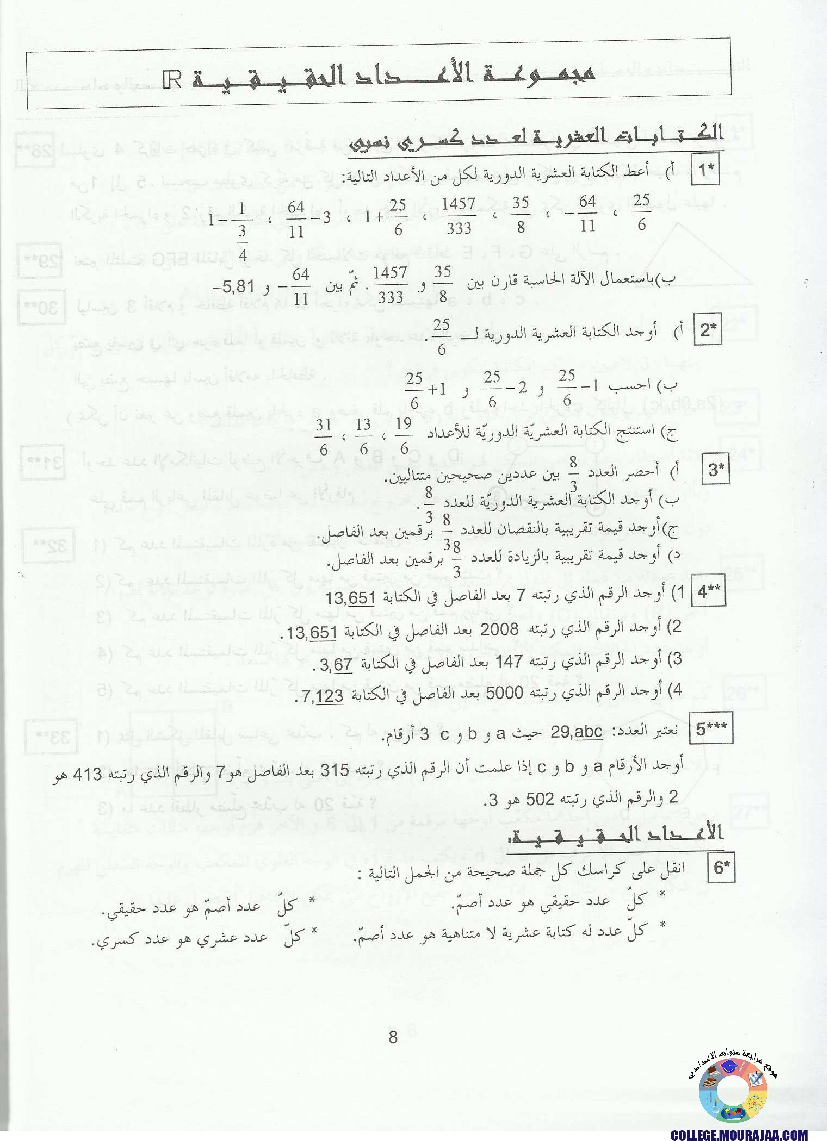 مجموعة الأعداد الحقيقية IR
الكتابات العشرية لعدد كسري نسبي
1* أ) أعط الكتابة العشرية الدورية لكل من الأعداد التالية:
25/6 ، -64/11 ، 35/8 ، 1457/333 ، 1+25/6 ، 64/11-3 ، 1-1/(3/4)
ب) باستعمال الآلة الحاسبة قارن بين 35/8 و 1457/333 . ثم بين -64/11 و -5,81
2* أ) أوجد الكتابة العشرية الدورية لـ 25/6.
ب) احسب 25/6-1 و 25/6-2 و 25/6+1
ج) استنتج الكتابة العشرية الدوريّة للأعداد 19/6 ، 13/6 ، 31/6
3* أ) أحصر العدد 8/3 بين عددين صحيحين متتاليين.
ب) أوجد الكتابة العشرية الدوريّة للعدد 8/3.
ج) أوجد قيمة تقريبية بالنقصان للعدد 8/3 برقمين بعد الفاصل.
د) أوجد قيمة تقريبية بالزيادة للعدد 8/3 برقمين بعد الفاصل.
4** 1) أوجد الرقم الذي رتبته 7 بعد الفاصل في الكتابة 13,651
2) أوجد الرقم الذي رتبته 2008 بعد الفاصل في الكتابة 13,651.
3) أوجد الرقم الذي رتبته 147 بعد الفاصل في الكتابة 3,67.
4) أوجد الرقم الذي رتبته 5000 بعد الفاصل في الكتابة 7,123.
5*** نعتبر العدد: 29,abc حيث a و b و c 3 أرقام.
أوجد الأرقام a و b و c إذا علمت أن الرقم الذي رتبته 315 بعد الفاصل هو 7 والرقم الذي رتبته 413 هو
2 والرقم الذي رتبته 502 هو 3.
الأعداد الحقيقية:
6* انقل على كراسك كل جملة صحيحة من الجمل التالية :
* كلّ عدد حقيقي هو عدد أصمّ. * كلّ عدد أصمّ هو عدد حقيقي.
* كلّ عدد له كتابة عشرية لا متناهية هو عدد أصمّ. * كلّ عدد عشري هو عدد كسري.
8
موقع مراجعة
COLLEGE.MOURAJAA.COM